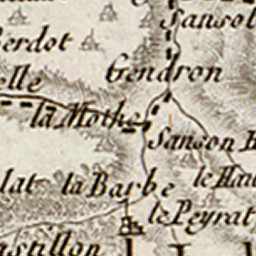 Sansol
Berdot
elle
Gendron
la Mothe
Sanson
lat
la Barbe
le Hau
le Peyrat
astillon